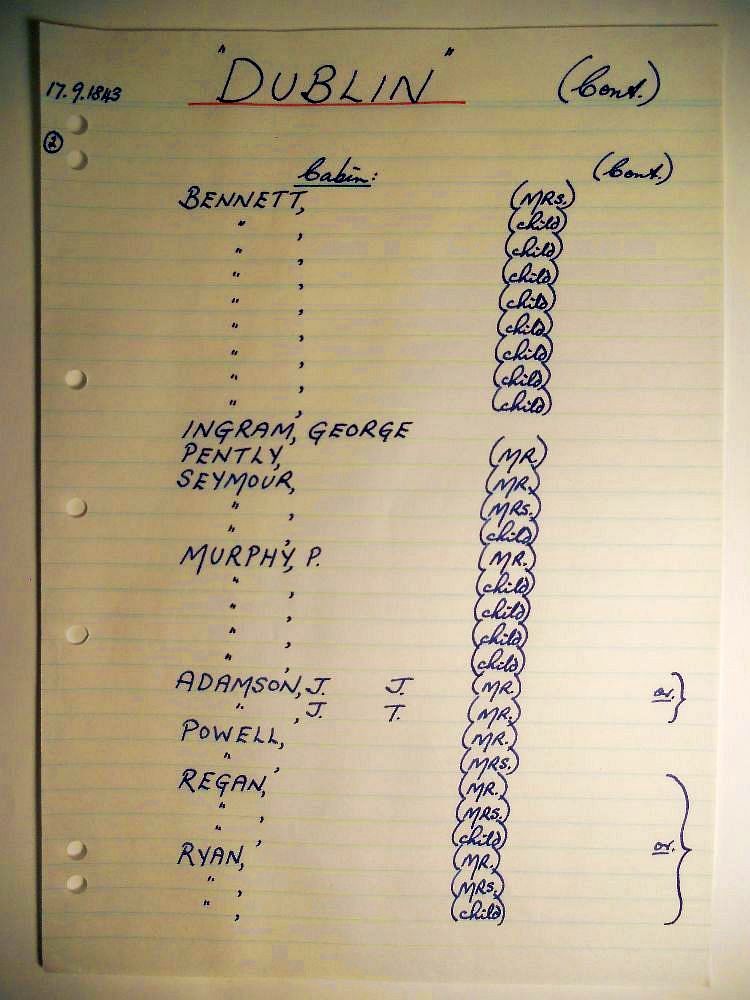 17.9.1843 "DUBLIN" (Cont.)
2
Cabin: (Cont.)
BENNETT, (MRS.)
" , (child)
" , (child)
" , (child)
" , (child)
" , (child)
" , (child)
" , (child)
" , (child)
INGRAM, GEORGE
PENTLY, (MR.)
SEYMOUR, (MR.)
" , (MRS.)
" , (child)
MURPHY, P. (MR.)
" , (child)
" , (child)
" , (child)
" , (child)
ADAMSON, J. J. (MR.) or. }
" , J. T. (MR.)
POWELL, (MR.)
" , (MRS.)
REGAN, (MR.)
" , (MRS.)
" , (child) or. }
RYAN, (MR.)
" , (MRS.)
" , (child)